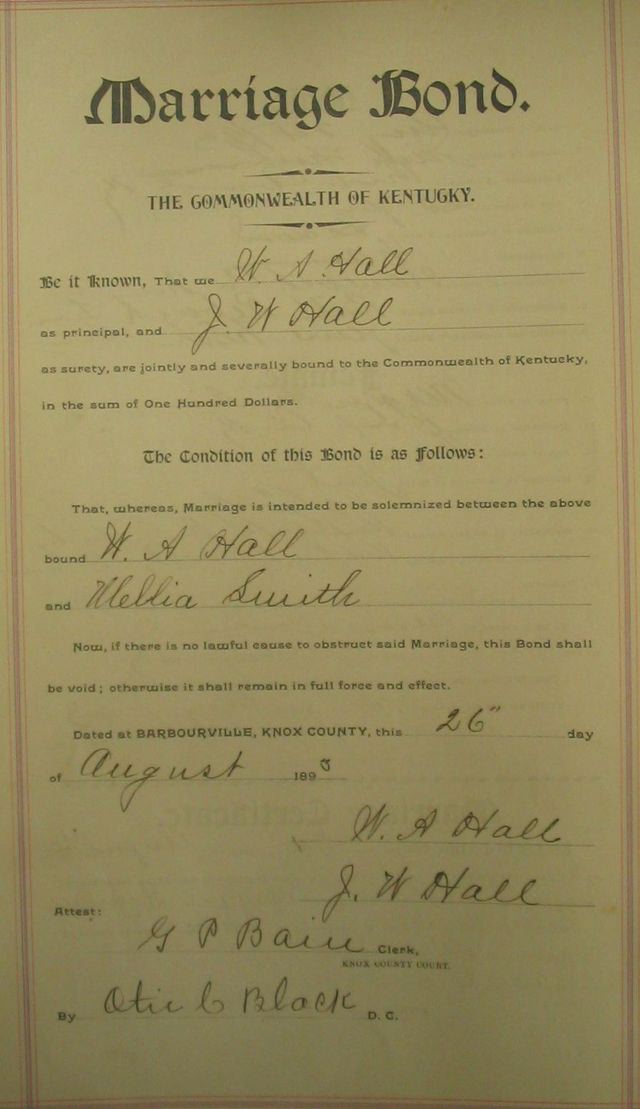 Marriage Bond.
THE COMMONWEALTH OF KENTUCKY.
Be it Known, That we W. A Hall
as principal, and J. W Hall
as surety, are jointly and severally bound to the Commonwealth of Kentucky,
in the sum of One Hundred Dollars.
The Condition of this Bond is as Follows:
That, whereas, Marriage is intended to be solemnized between the above
bound W. A Hall
and Smith
Now, if there is no lawful cause to obstruct said Marriage, this Bond shall
be void; otherwise it shall remain in full force and effect.
Dated at BARBOURVILLE, KNOX COUNTY, this 26" day
of August 189
W. A Hall
J. W Hall
Attest:
G P Bain Clerk,
KNOX COUNTY COURT.
By Otis C Black D. C.